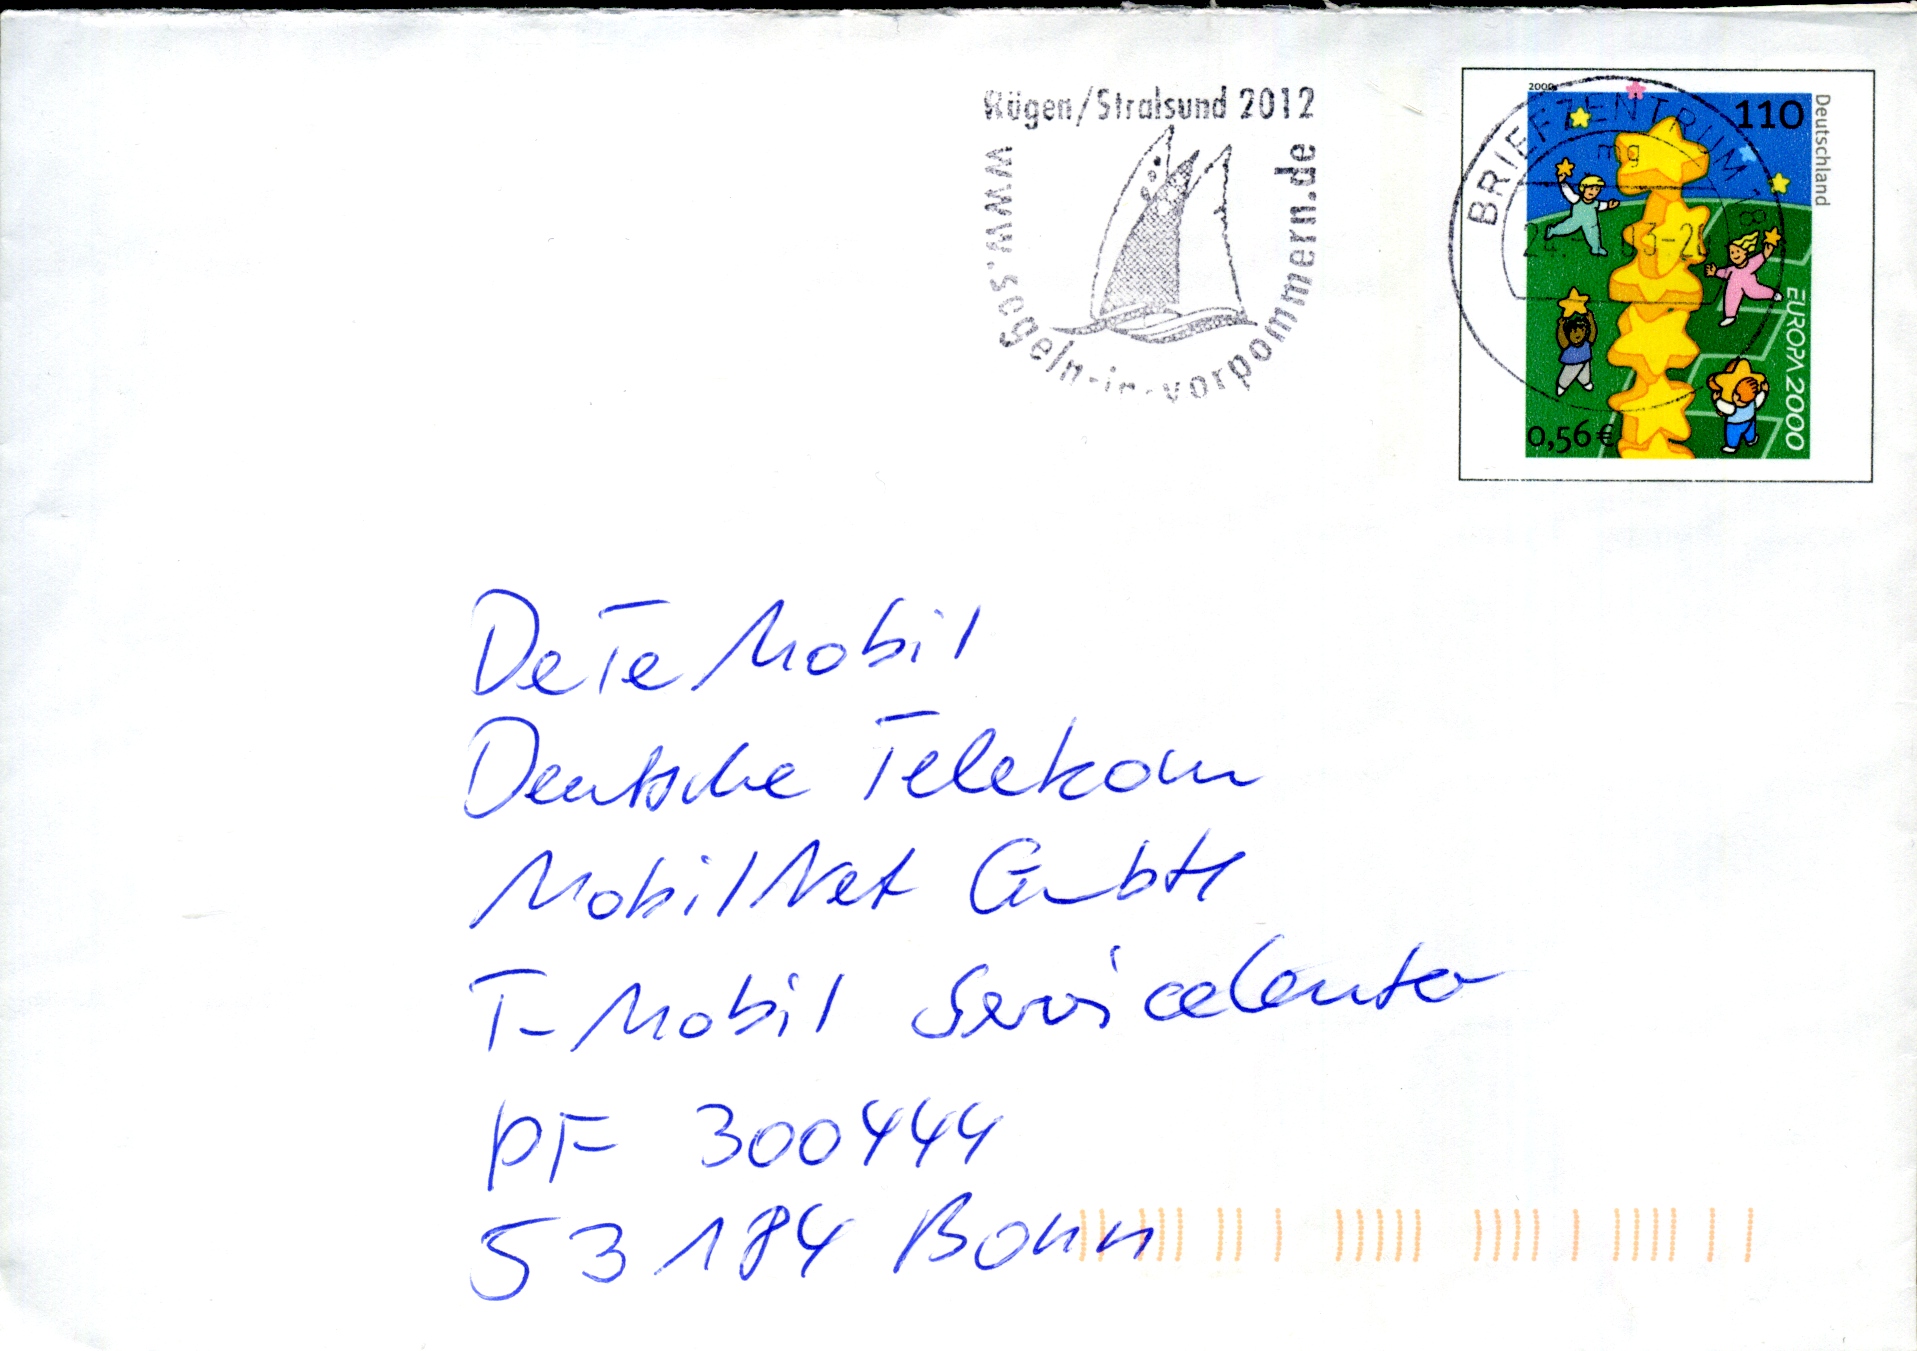 Rügen/Stralsund 2012
www.segeln-in-vorpommern.de
2000
110
Deutschland
BRIEFZENTRUM 18
mg
EUROPA 2000
0,56 €
DeTeMobil
Deutsche Telekom
MobilNet GmbH
T-Mobil ServiceCenter
PF 300444
53184 Bonn